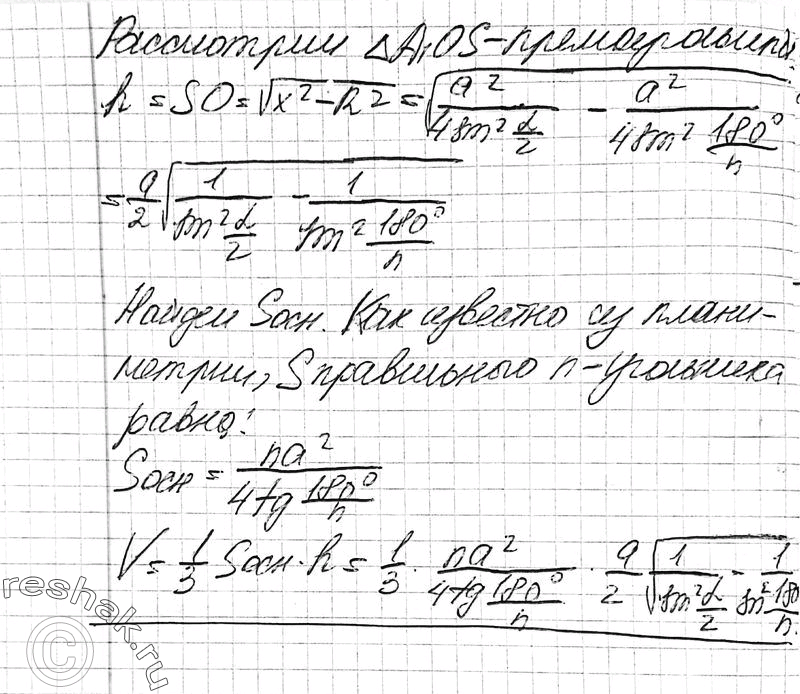 Рассмотрим △A₁OS-прямоугольный.
h = SO = √(x² - R²) = √(a²/(4sin² α/2) - a²/(4sin² 180°/n))
= a/2 √(1/(sin² α/2) - 1/(sin² 180°/n))
Найдем Sосн. Как известно из плани-
метрии, S правильного n-угольника
равна:
Sосн = na²/(4tg 180°/n)
V = 1/3 Sосн · h = 1/3 · na²/(4tg 180°/n) · a/2 √(1/(sin² α/2) - 1/(sin² 180/n)).
reshak.ru
©